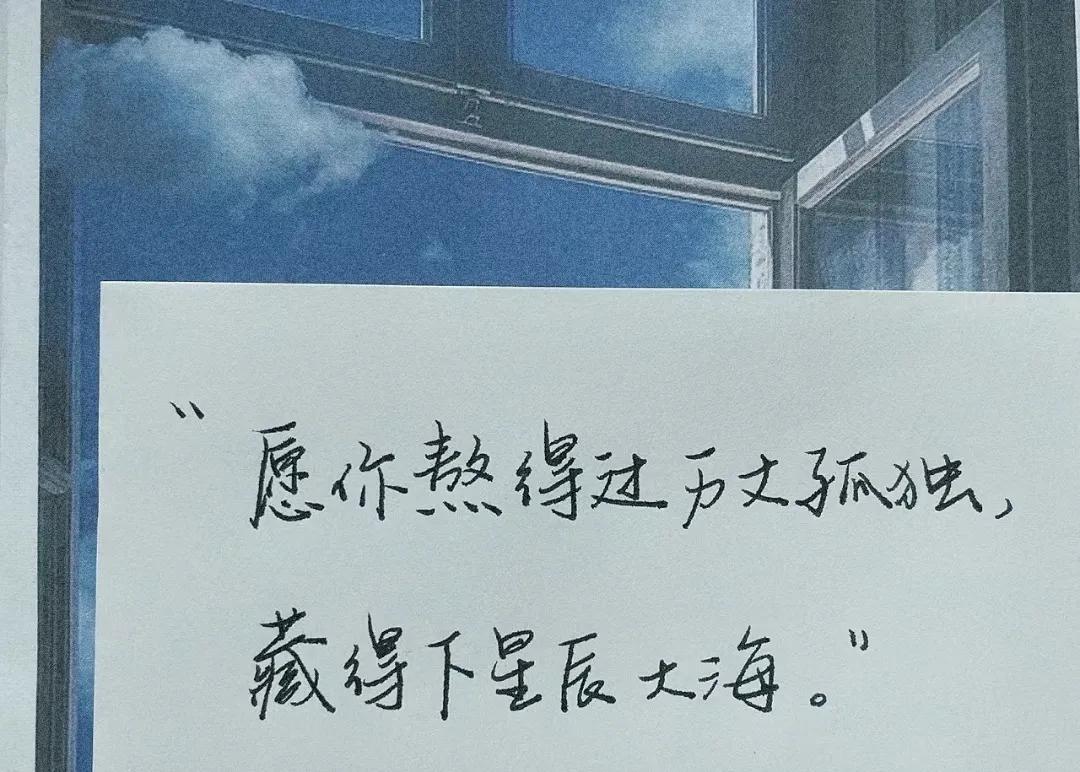 “愿你熬得过万丈孤独,
藏得下星辰大海。”